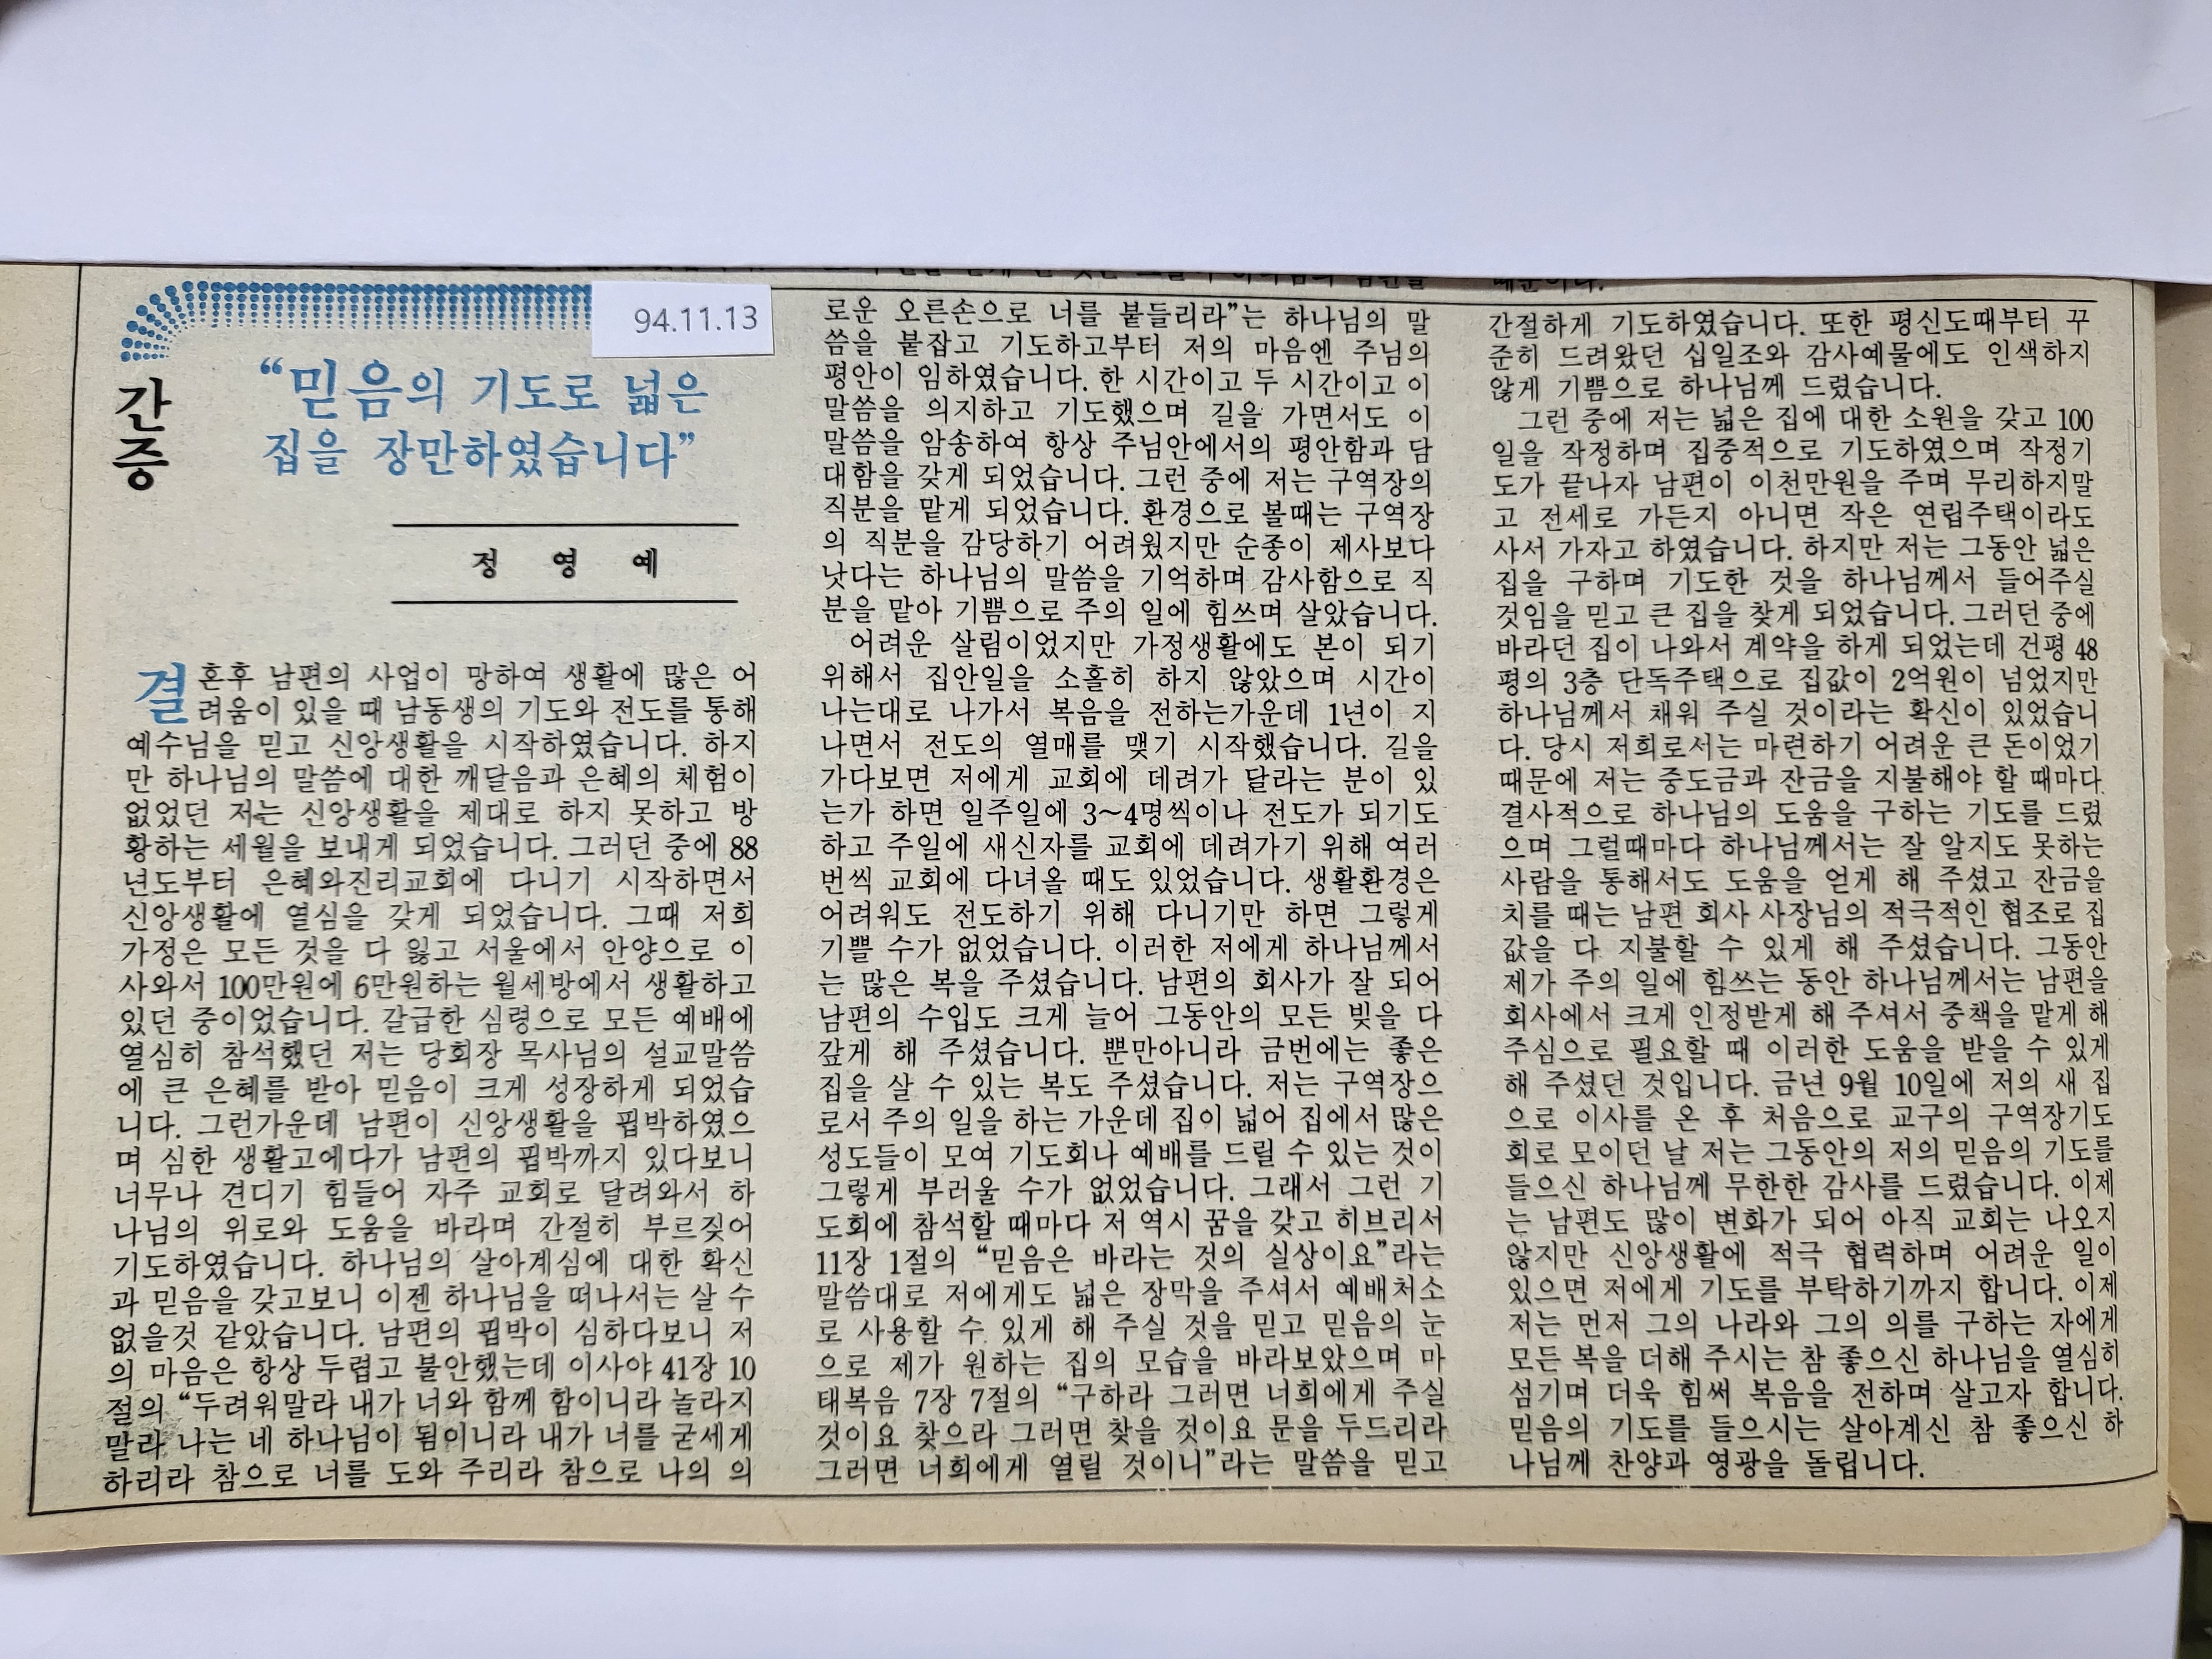 94.11.13
간증
“믿음의 기도로 넓은
집을 장만하였습니다”
정 영 예
결혼후 남편의 사업이 망하여 생활에 많은 어
려움이 있을 때 남동생의 기도와 전도를 통해
예수님을 믿고 신앙생활을 시작하였습니다. 하지
만 하나님의 말씀에 대한 깨달음과 은혜의 체험이
없었던 저는 신앙생활을 제대로 하지 못하고 방
황하는 세월을 보내게 되었습니다. 그러던 중에 88
년도부터 은혜와진리교회에 다니기 시작하면서
신앙생활에 열심을 갖게 되었습니다. 그때 저희
가정은 모든 것을 다 잃고 서울에서 안양으로 이
사와서 100만원에 6만원하는 월세방에서 생활하고
있던 중이었습니다. 갈급한 심령으로 모든 예배에
열심히 참석했던 저는 당회장 목사님의 설교말씀
에 큰 은혜를 받아 믿음이 크게 성장하게 되었습
니다. 그런가운데 남편이 신앙생활을 핍박하였으
며 심한 생활고에다가 남편의 핍박까지 있다보니
너무나 견디기 힘들어 자주 교회로 달려와서 하
나님의 위로와 도움을 바라며 간절히 부르짖어
기도하였습니다. 하나님의 살아계심에 대한 확신
과 믿음을 갖고보니 이젠 하나님을 떠나서는 살 수
없을것 같았습니다. 남편의 핍박이 심하다보니 저
의 마음은 항상 두렵고 불안했는데 이사야 41장 10
절의 “두려워말라 내가 너와 함께 함이니라 놀라지
말라 나는 네 하나님이 됨이니라 내가 너를 굳세게
하리라 참으로 너를 도와 주리라 참으로 나의 의
로운 오른손으로 너를 붙들리라”는 하나님의 말
씀을 붙잡고 기도하고부터 저의 마음엔 주님의
평안이 임하였습니다. 한 시간이고 두 시간이고 이
말씀을 의지하고 기도했으며 길을 가면서도 이
말씀을 암송하여 항상 주님안에서의 평안함과 담
대함을 갖게 되었습니다. 그런 중에 저는 구역장의
직분을 맡게 되었습니다. 환경으로 볼때는 구역장
의 직분을 감당하기 어려웠지만 순종이 제사보다
낫다는 하나님의 말씀을 기억하며 감사함으로 직
분을 맡아 기쁨으로 주의 일에 힘쓰며 살았습니다.
어려운 살림이었지만 가정생활에도 본이 되기
위해서 집안일을 소홀히 하지 않았으며 시간이
나는대로 나가서 복음을 전하는가운데 1년이 지
나면서 전도의 열매를 맺기 시작했습니다. 길을
가다보면 저에게 교회에 데려가 달라는 분이 있
는가 하면 일주일에 3~4명씩이나 전도가 되기도
하고 주일에 새신자를 교회에 데려가기 위해 여러
번씩 교회에 다녀올 때도 있었습니다. 생활환경은
어려워도 전도하기 위해 다니기만 하면 그렇게
기쁠 수가 없었습니다. 이러한 저에게 하나님께서
는 많은 복을 주셨습니다. 남편의 회사가 잘 되어
남편의 수입도 크게 늘어 그동안의 모든 빚을 다
갚게 해 주셨습니다. 뿐만아니라 금번에는 좋은
집을 살 수 있는 복도 주셨습니다. 저는 구역장으
로서 주의 일을 하는 가운데 집이 넓어 집에서 많은
성도들이 모여 기도회나 예배를 드릴 수 있는 것이
그렇게 부러울 수가 없었습니다. 그래서 그런 기
도회에 참석할 때마다 저 역시 꿈을 갖고 히브리서
11장 1절의 “믿음은 바라는 것의 실상이요”라는
말씀대로 저에게도 넓은 장막을 주셔서 예배처소
로 사용할 수 있게 해 주실 것을 믿고 믿음의 눈
으로 제가 원하는 집의 모습을 바라보았으며 마
태복음 7장 7절의 “구하라 그러면 너희에게 주실
것이요 찾으라 그러면 찾을 것이요 문을 두드리라
그러면 너희에게 열릴 것이니”라는 말씀을 믿고
간절하게 기도하였습니다. 또한 평신도때부터 꾸
준히 드려왔던 십일조와 감사예물에도 인색하지
않게 기쁨으로 하나님께 드렸습니다.
그런 중에 저는 넓은 집에 대한 소원을 갖고 100
일을 작정하며 집중적으로 기도하였으며 작정기
도가 끝나자 남편이 이천만원을 주며 무리하지말
고 전세로 가든지 아니면 작은 연립주택이라도
사서 가자고 하였습니다. 하지만 저는 그동안 넓은
집을 구하며 기도한 것을 하나님께서 들어주실
것임을 믿고 큰 집을 찾게 되었습니다. 그러던 중에
바라던 집이 나와서 계약을 하게 되었는데 건평 48
평의 3층 단독주택으로 집값이 2억원이 넘었지만
하나님께서 채워 주실 것이라는 확신이 있었습니
다. 당시 저희로서는 마련하기 어려운 큰 돈이었기
때문에 저는 중도금과 잔금을 지불해야 할 때마다
결사적으로 하나님의 도움을 구하는 기도를 드렸
으며 그럴때마다 하나님께서는 잘 알지도 못하는
사람을 통해서도 도움을 얻게 해 주셨고 잔금을
치를 때는 남편 회사 사장님의 적극적인 협조로 집
값을 다 지불할 수 있게 해 주셨습니다. 그동안
제가 주의 일에 힘쓰는 동안 하나님께서는 남편을
회사에서 크게 인정받게 해 주셔서 중책을 맡게 해
주심으로 필요할 때 이러한 도움을 받을 수 있게
해 주셨던 것입니다. 금년 9월 10일에 저의 새 집
으로 이사를 온 후 처음으로 교구의 구역장기도
회로 모이던 날 저는 그동안의 저의 믿음의 기도를
들으신 하나님께 무한한 감사를 드렸습니다. 이제
는 남편도 많이 변화가 되어 아직 교회는 나오지
않지만 신앙생활에 적극 협력하며 어려운 일이
있으면 저에게 기도를 부탁하기까지 합니다. 이제
저는 먼저 그의 나라와 그의 의를 구하는 자에게
모든 복을 더해 주시는 참 좋으신 하나님을 열심히
섬기며 더욱 힘써 복음을 전하며 살고자 합니다.
믿음의 기도를 들으시는 살아계신 참 좋으신 하
나님께 찬양과 영광을 돌립니다.